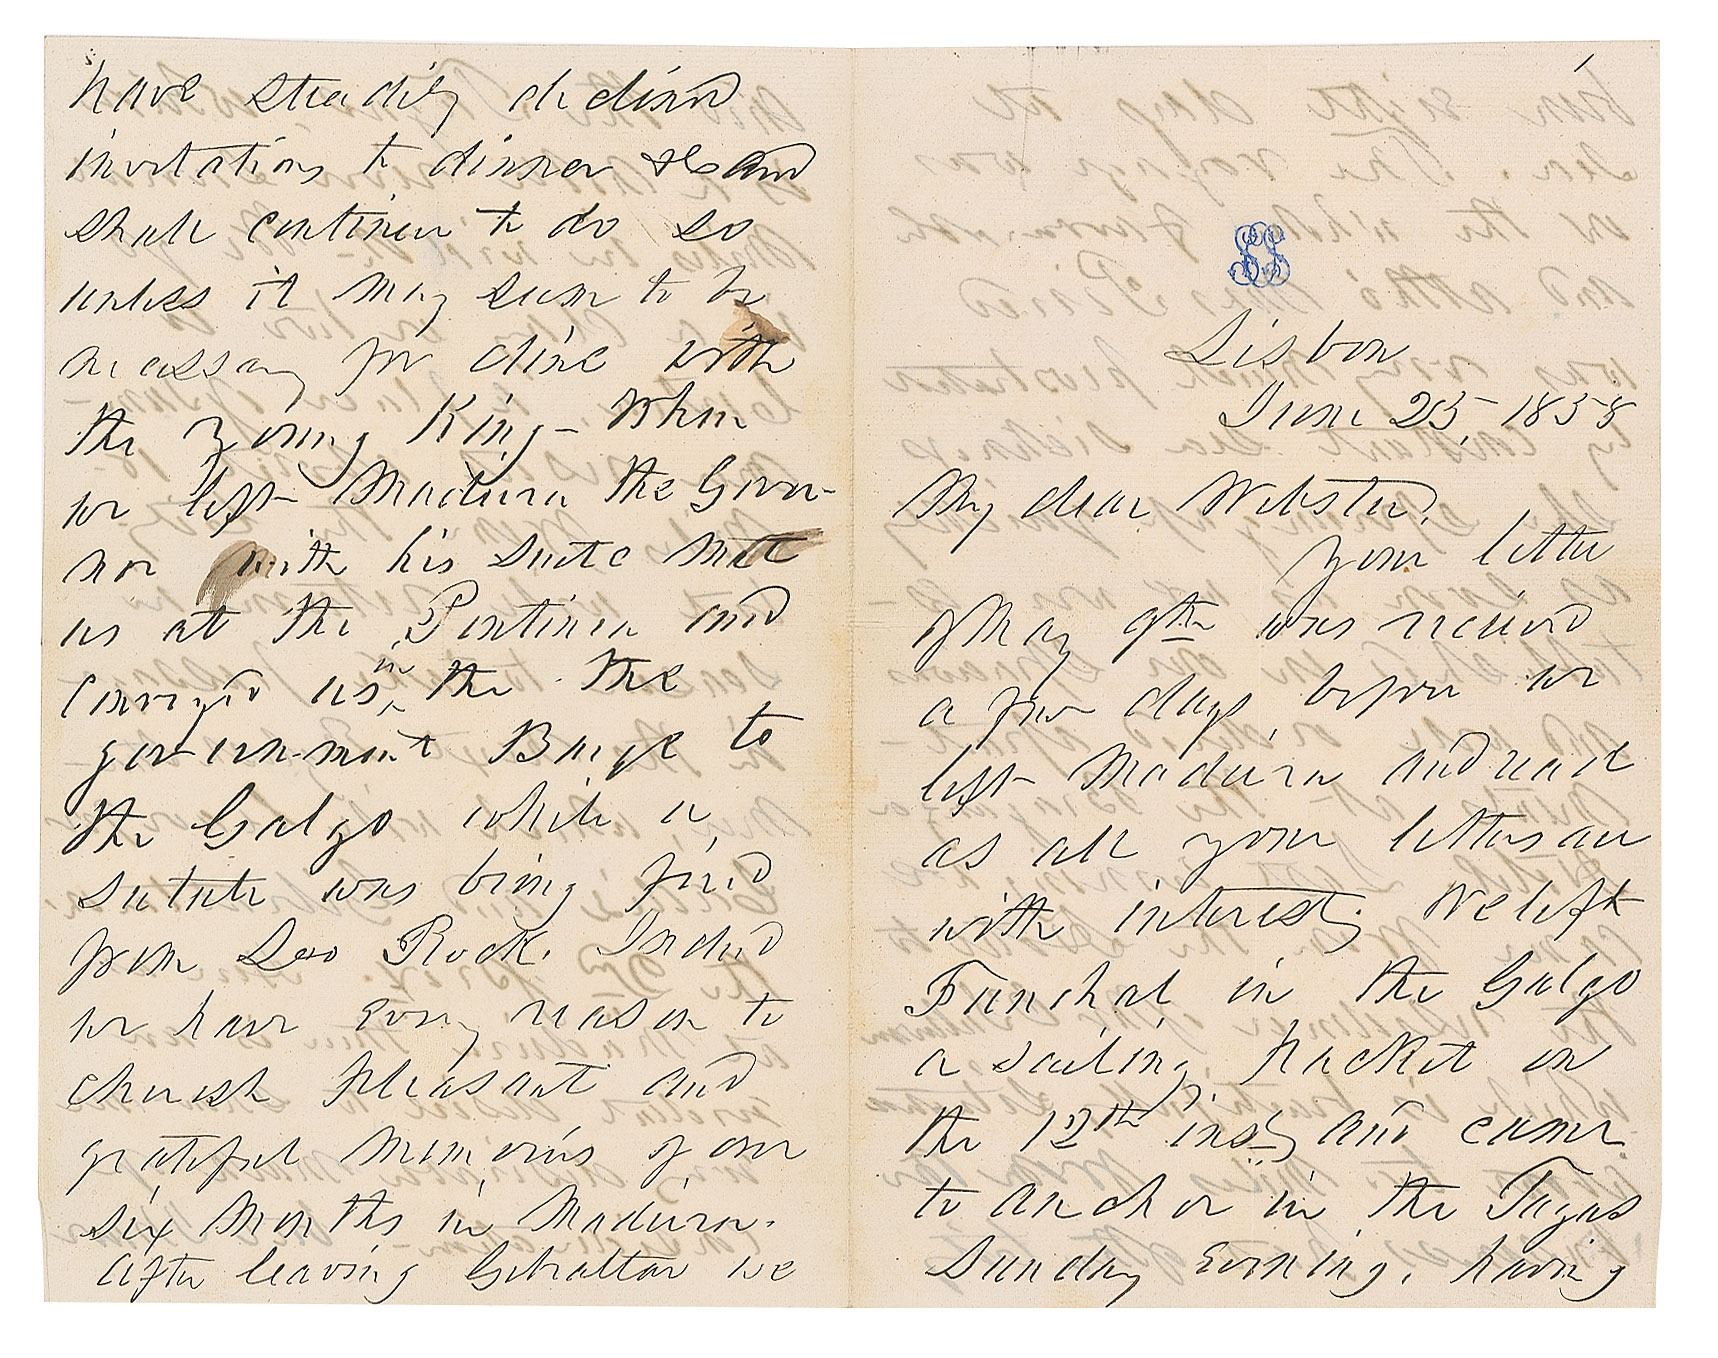 Lisbon
June 25, 1858
My dear Webster,
Your letter
of May 9th was received
a few days before we
left Madeira and read
as all your letters are
with interest. We left
Funchal in the Galgo
a sailing packet on
the 12th inst, and came
to anchor in the Tagus
Sunday Evening, having
have steadily declined
invitations to dinner &c and
shall continue to do so
unless it may seem to be
necessary for dine with
the young King— When
we left Madeira the Gover-
nor with his suite met
us at the Pontinia and
conveyed us in the the
government Barge to
the Galgo while a
salute was being fired
from Loo Rock. Indeed
we have Every reason to
cherish pleasant and
grateful memories of our
six Months in Madeira.
After leaving Gibraltar we